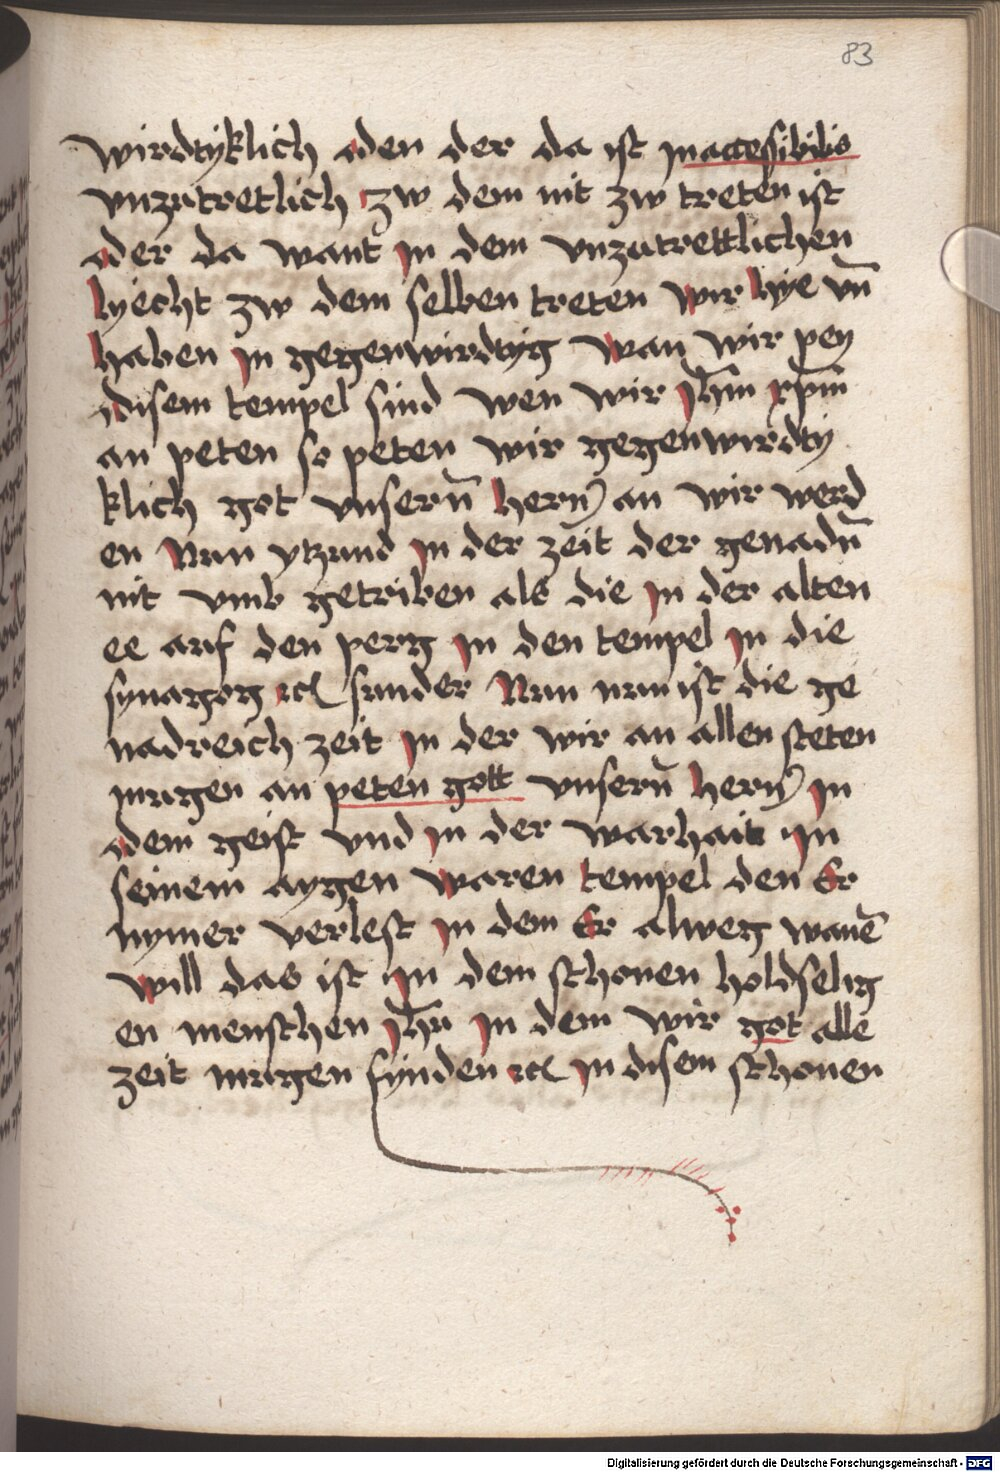 83
wirdtyklich den der da ist inaccessibilis
vnzutretlich zw dem nit zw treten ist
der da want in dem vnzutrettlichen
lyecht zw dem selben treten wir hye vn̄
haben in gegenwirdtyg wan wir pey
disem tempel sind wen wir jhm̄ xp̄m
an peten so peten wir gegenwirdty
klich got vnsern̄ hern an wir werd
en Nun ytzund in der zeit der genadn̄
nit vmb getriben als die in der alten
ee auf den perg in den tempel in die
synagog ꝛcͣ sunder Nun nun ist die ge
nadreich zeit in der wir an allen steten
mugen an peten gott vnsern̄ hern in
dem geist vnd in der warhait in
seinem aygen waren tempel den Er
nymer verlest in dem Er alweg wanē
will das ist in dem schonen holdselig
en menschen jhū in dem wir got alle
zeit mugen fynden ꝛc in disem schonen
Digitalisierung gefördert durch die Deutsche Forschungsgemeinschaft - DFG